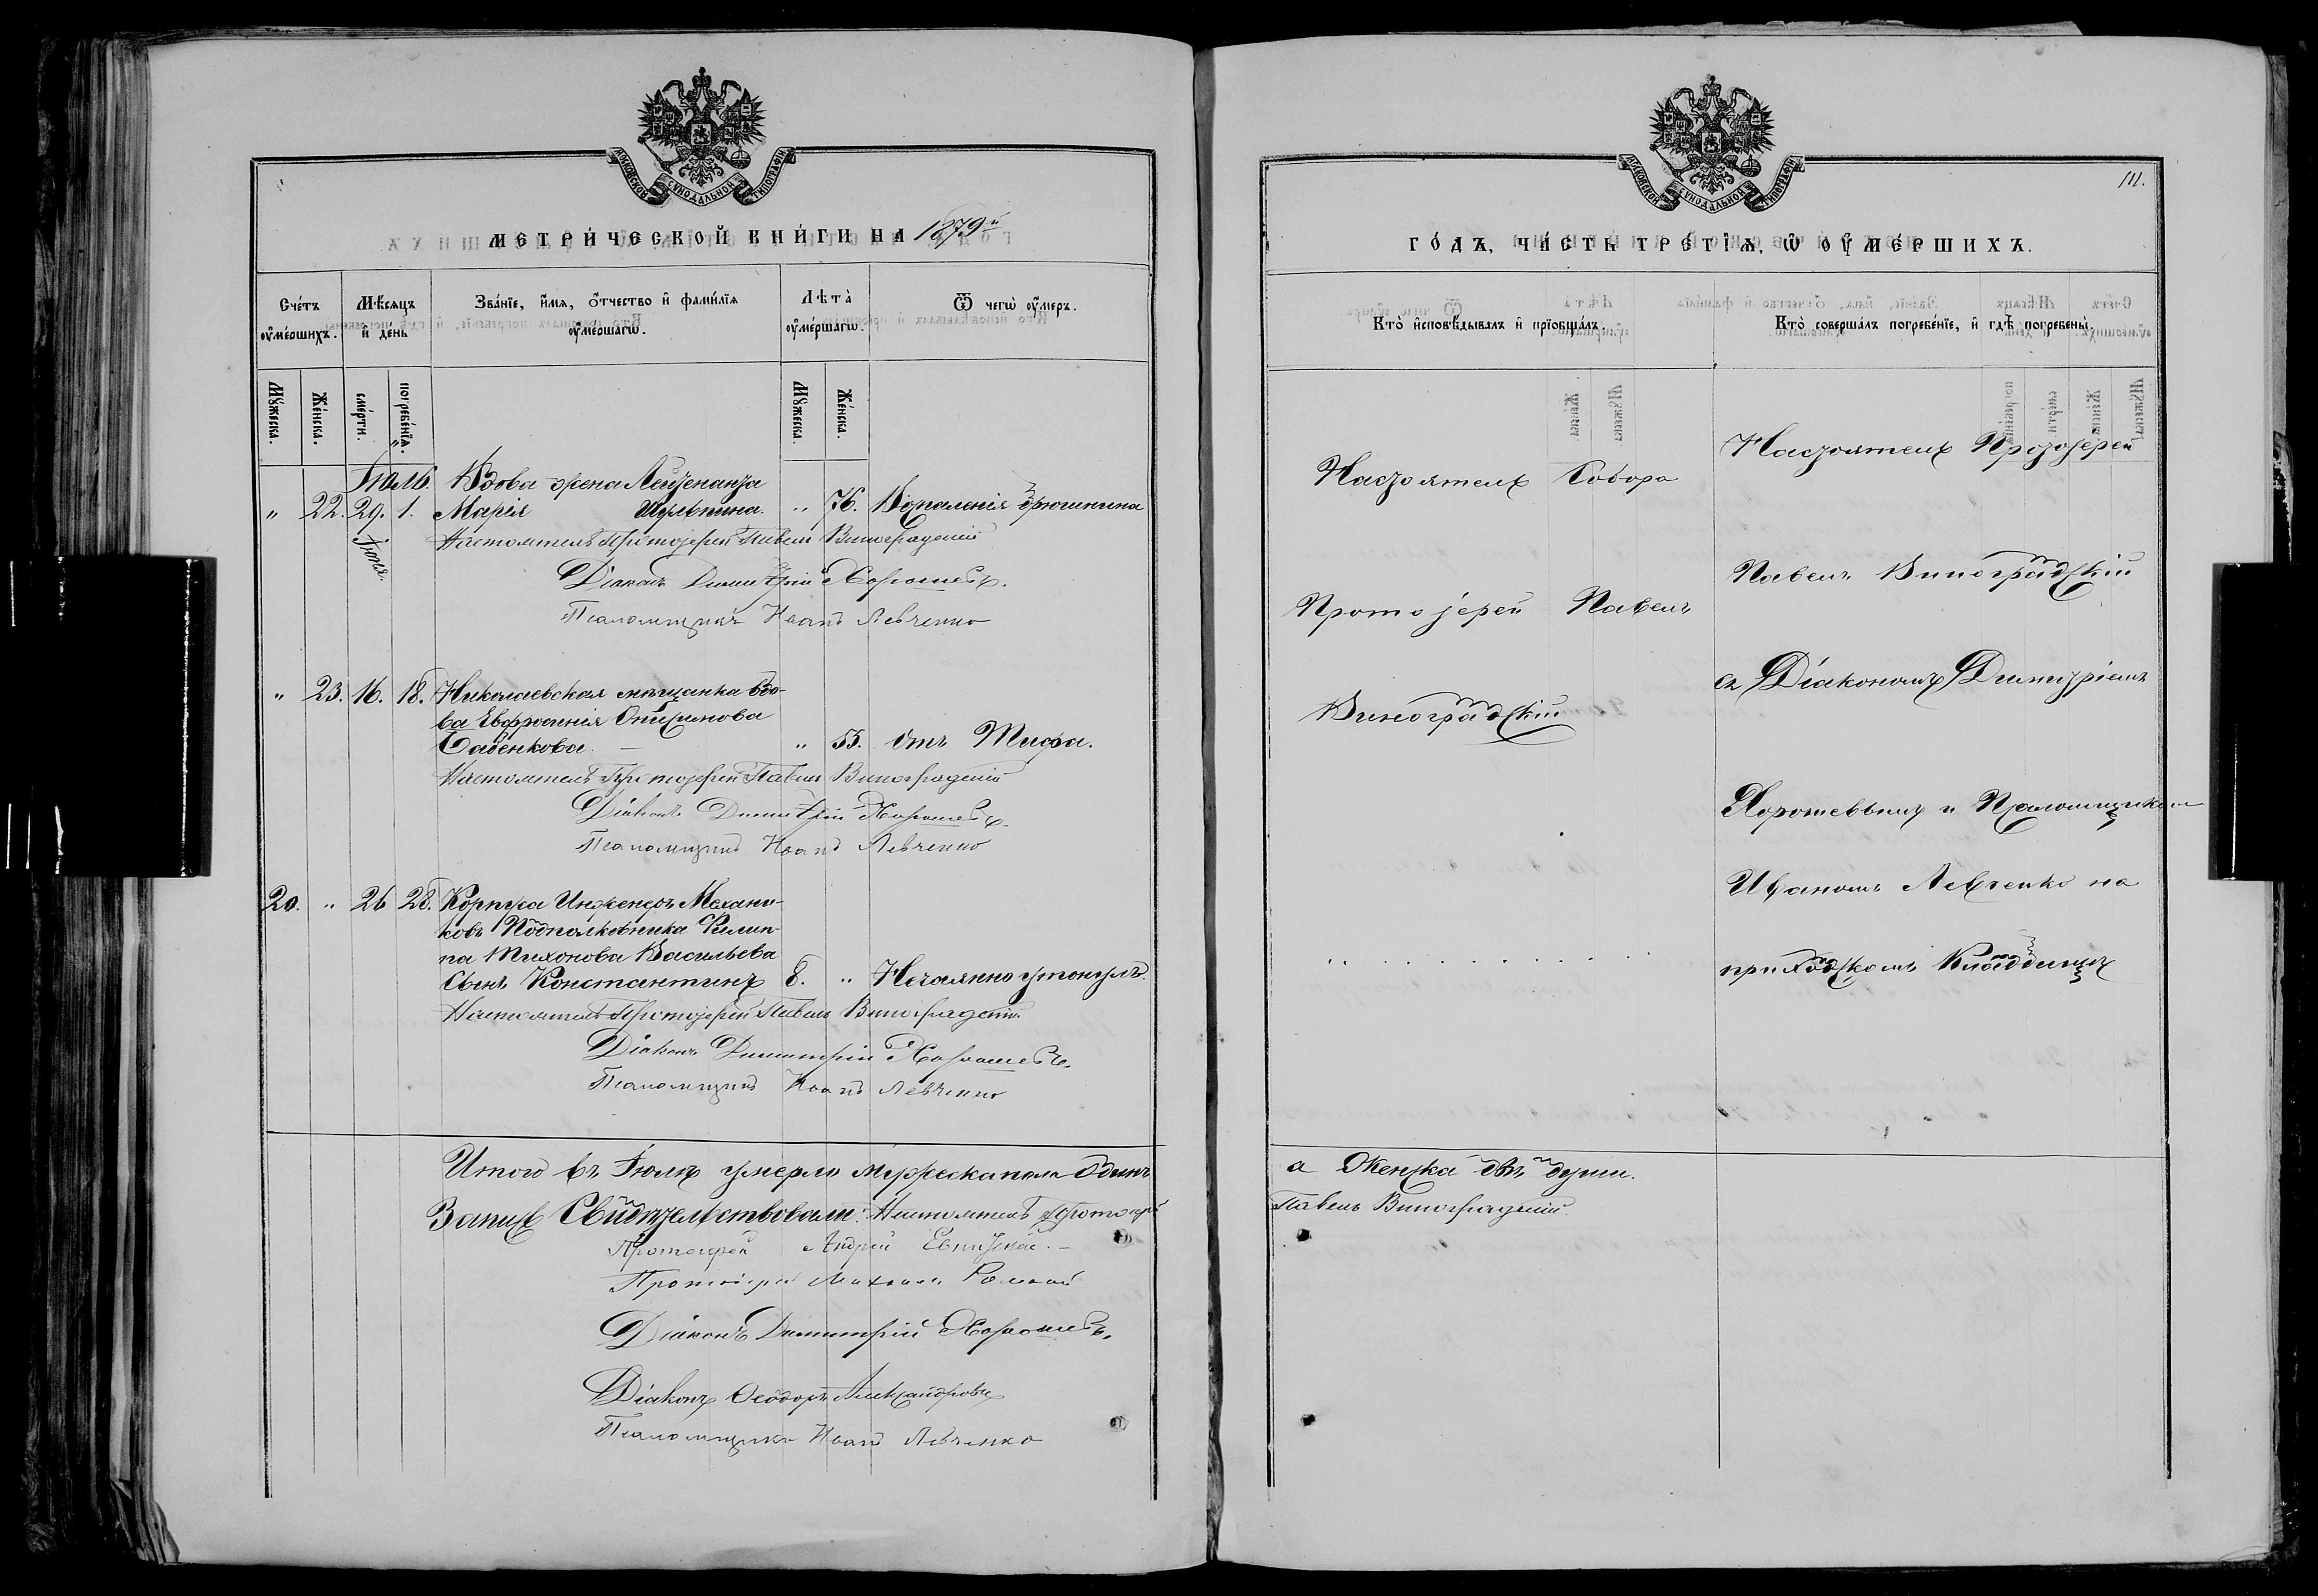 МОСКОВСКОЙ СѴНОДАЛЬНОЙ ТИПОГРАФІИ
МЕТРИ́ЧЕСКОЙ КНИ́ГИ НА 1879й
Сче́тъ ᲂу҆ме́ршихъ.
Мѣ́сѧцъ и҆ де́нь
Зва́нїе, и҆́мѧ, ѻ҆́тчество и҆ фами́лїѧ ᲂу҆ме́ршагѡ.
Лѣта̀ ᲂу҆ме́ршагѡ.
Ѿ чегѡ̀ ᲂу҆́меръ.
Мꙋ́жеска.
Же́нска.
сме́рти.
погребе́нїѧ.
Мꙋ́жеска.
Же́нска.
Іюль.
Вдова жена Лейтенанта
" 22. 29. 1. Марія " 76. Воспаленія
Іюня
Настоятель Протоіерей Павелъ Виноградскій
Діаконъ Димитрій Хорошевъ.
Псаломщикъ Иванъ Левченко
" 23. 16. 18. Николаевская мѣщанка вдо-
ва Евфросинія
Бабенкова. " 55. Отъ Тифа.
Настоятель Протоіерей Павелъ Виноградскій
Діаконъ Димитрій Хорошевъ.
Псаломщикъ Иванъ Левченко
20. " 26 28. Корпуса Инженеръ Механи-
ковъ Подполковника Филип-
па Тихонова Васильева
Сынъ Константинъ 8. " Нечаянно утонулъ.
Настоятель Протоіерей Павелъ Виноградскій
Діаконъ Димитрій Хорошевъ.
Псаломщикъ Иванъ Левченко
Итого въ Іюлѣ умерло мужеска пола Одинъ
Запись Свидѣтельствовали: Настоятель Протоіерей
Протоіерей Андрей
Протоіерей Михаилъ
Діаконъ Димитрій Хорошевъ.
Діаконъ Ѳеодоръ Александровъ
Псаломщикъ Иванъ Левченко
МОСКОВСКОЙ СѴНОДАЛЬНОЙ ТИПОГРАФІИ
111.
ГО́ДЪ, ЧА́СТЬ ТРЕ́ТЇѦ, Ѡ ОУ҆МЕ́РШИХЪ.
Кто̀ и҆сповѣ́дывалъ и҆ прїѡбща́лъ.
Кто̀ соверша́лъ погребе́нїе, и҆ гдѣ̀ погребены̀.
Настоятель Собора
Протоіерей Павелъ
Виноградскій
Настоятель Протоіерей
Павелъ Виноградскій
съ Діакономъ Димитріемъ
Хорошевымъ и Псаломщикомъ
Иваномъ Левченко на
приходскомъ Кладбищѣ
а Женска двѣ души.
Павелъ Виноградскій.